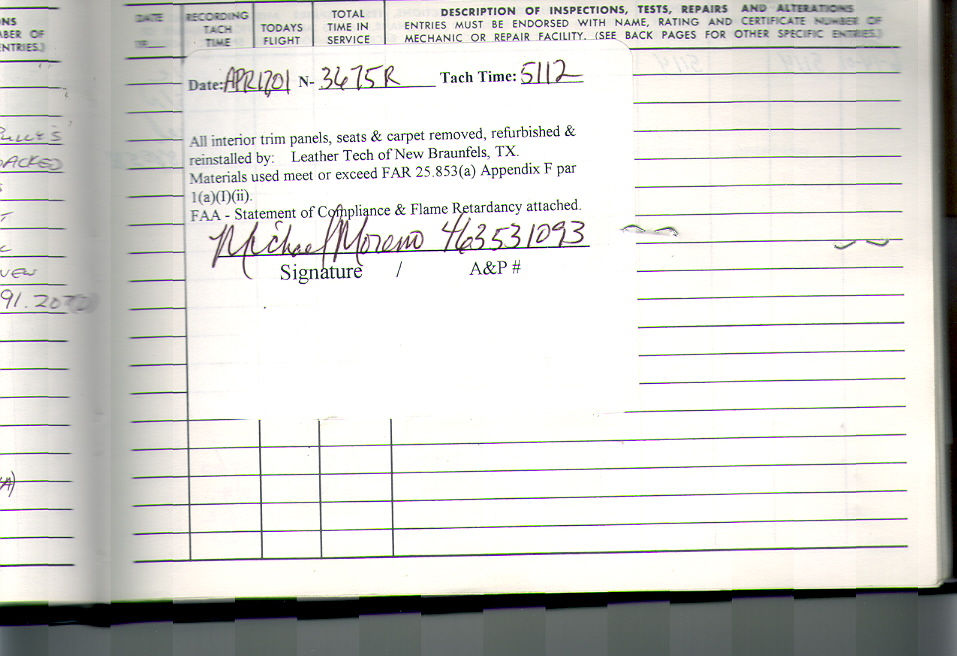 NS
BER OF
NTRIES.)
ACKED
91.207
A)
DATE
RECORDING
TACH
TIME
TODAYS
FLIGHT
TOTAL
TIME IN
SERVICE
DESCRIPTION OF INSPECTIONS, TESTS, REPAIRS AND ALTERATIONS
ENTRIES MUST BE ENDORSED WITH NAME, RATING AND CERTIFICATE NUMBER OF
MECHANIC OR REPAIR FACILITY. (SEE BACK PAGES FOR OTHER SPECIFIC ENTRIES.)
Date: APR1701 N- 3675R Tach Time: 5112
All interior trim panels, seats & carpet removed, refurbished &
reinstalled by: Leather Tech of New Braunfels, TX.
Materials used meet or exceed FAR 25.853(a) Appendix F par
1(a)(I)(ii).
FAA - Statement of Compliance & Flame Retardancy attached.
Michael Moreno 463531093
Signature / A&P #